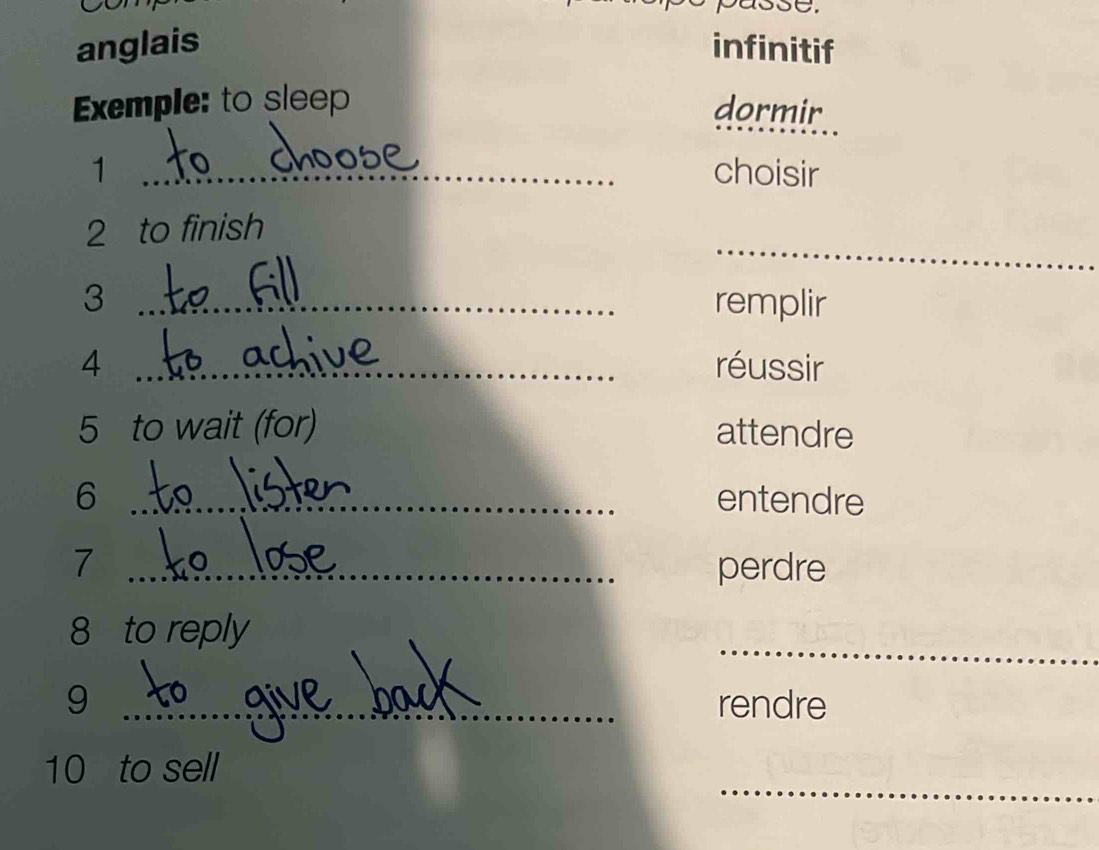 passé.
anglais infinitif
Exemple: to sleep dormir
1 to choose choisir
2 to finish
3 to fill remplir
4 to achive réussir
5 to wait (for) attendre
6 to listen entendre
7 to lose perdre
8 to reply
9 to give back rendre
10 to sell